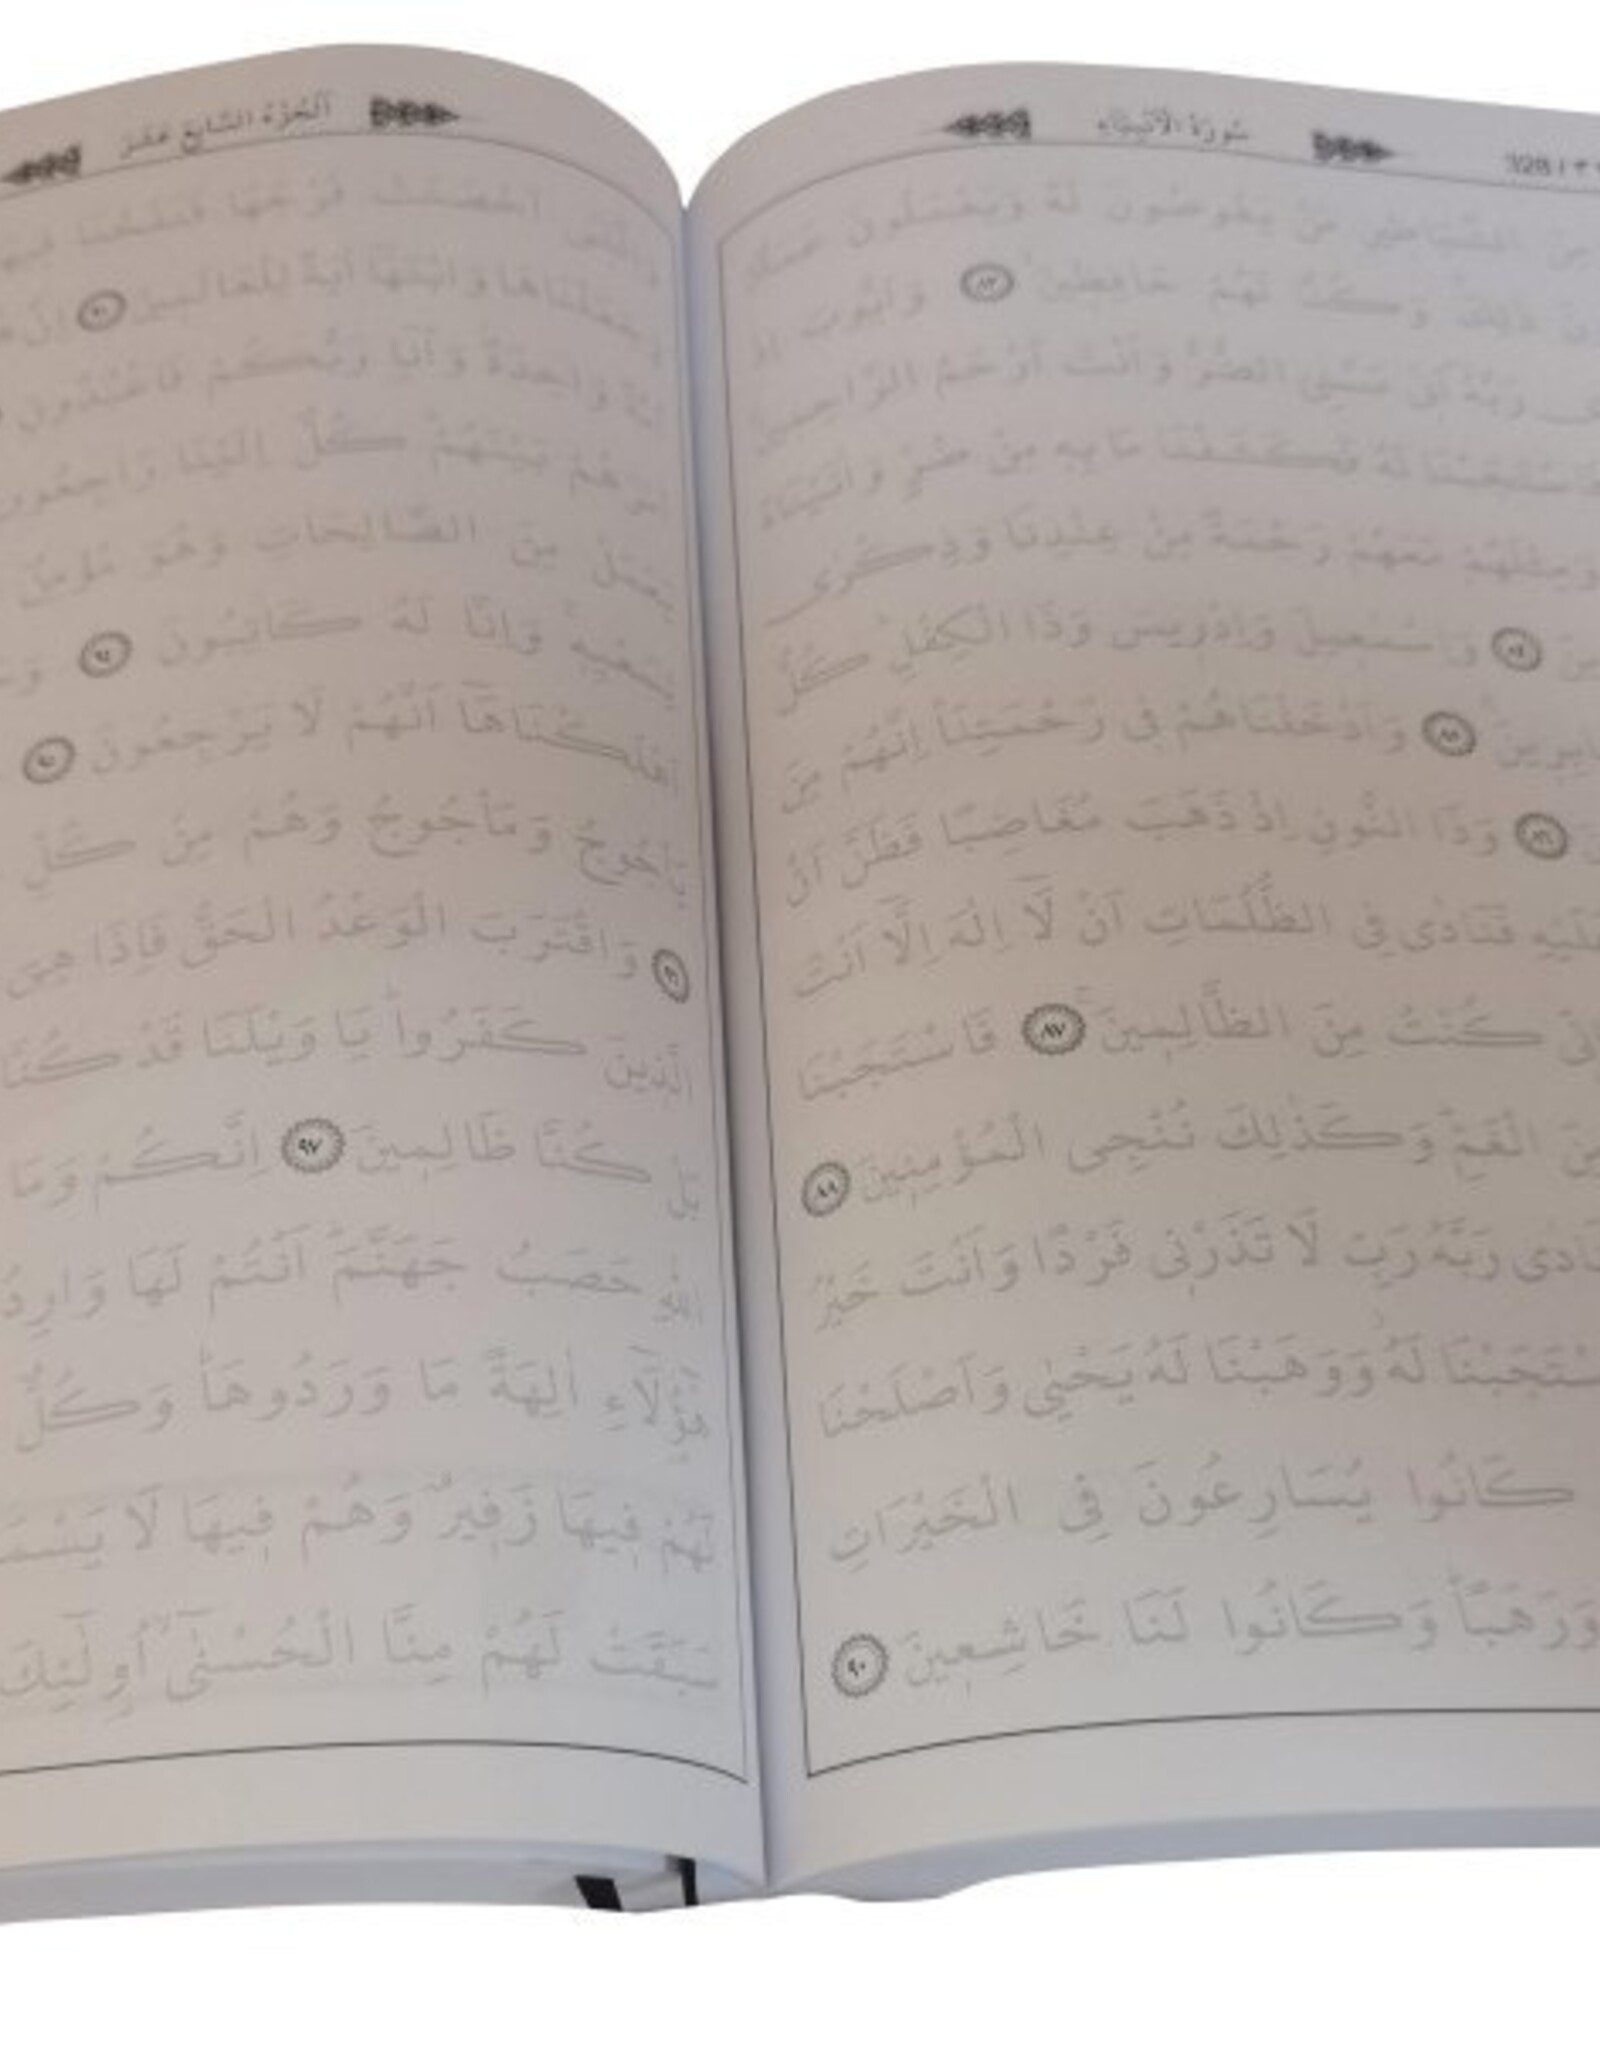 سُورَةُ الْاَنْبِيَاءِ
328
الشَّيَاطِينِ مَنْ يَغُوصُونَ لَهُ وَيَعْمَلُونَ عَمَلًا
ذٰلِكَ وَكُنَّا لَهُمْ حَافِظِينَ ﴿٨٢﴾ وَاَيُّوبَ اِذْ
رَبَّهُٓ اَنِّى مَسَّنِىَ الضُّرُّ وَاَنْتَ اَرْحَمُ الرَّاحِمِينَ
لَهُ فَكَشَفْنَا مَا بِهِ مِنْ ضُرٍّ وَاٰتَيْنَاهُ
وَمِثْلَهُمْ مَعَهُمْ رَحْمَةً مِنْ عِنْدِنَا وَذِكْرٰى
﴿٨٤﴾ وَاِسْمٰعِيلَ وَاِدْرِيسَ وَذَا الْكِفْلِ كُلٌّ
﴿٨٥﴾ وَاَدْخَلْنَاهُمْ فِى رَحْمَتِنَا اِنَّهُمْ مِنَ
﴿٨٦﴾ وَذَا النُّونِ اِذْ ذَهَبَ مُغَاضِبًا فَظَنَّ اَنْ
عَلَيْهِ فَنَادٰى فِى الظُّلُمَاتِ اَنْ لَٓا اِلٰهَ اِلَّٓا اَنْتَ
كُنْتُ مِنَ الظَّالِمِينَ ﴿٨٧﴾ فَاسْتَجَبْنَا
الْغَمِّ وَكَذٰلِكَ نُنْجِى الْمُؤْمِنِينَ ﴿٨٨﴾
رَبَّهُ رَبِّ لَا تَذَرْنِى فَرْدًا وَاَنْتَ خَيْرُ
لَهُ وَوَهَبْنَا لَهُ يَحْيٰى وَاَصْلَحْنَا
كَانُوا يُسَارِعُونَ فِى الْخَيْرَاتِ
وَرَهَبًا وَكَانُوا لَنَا خَاشِعِينَ ﴿٩٠﴾
اَلْجُزْءُ السَّابِعَ عَشَرَ
وَالَّتِى اَحْصَنَتْ فَرْجَهَا فَنَفَخْنَا فِيهَا
وَجَعَلْنَاهَا وَابْنَهَٓا اٰيَةً لِلْعَالَمِينَ ﴿٩١﴾ اِنَّ
وَاحِدَةً وَاَنَا رَبُّكُمْ فَاعْبُدُونِ
بَيْنَهُمْ كُلٌّ اِلَيْنَا رَاجِعُونَ
يَعْمَلْ مِنَ الصَّالِحَاتِ وَهُوَ مُؤْمِنٌ
لِسَعْيِهِ وَاِنَّا لَهُ كَاتِبُونَ ﴿٩٤﴾
اَهْلَكْنَاهَٓا اَنَّهُمْ لَا يَرْجِعُونَ ﴿٩٥﴾
يَاْجُوجُ وَمَاْجُوجُ وَهُمْ مِنْ كُلِّ
﴿٩٦﴾ وَاقْتَرَبَ الْوَعْدُ الْحَقُّ فَاِذَا هِىَ
الَّذِينَ كَفَرُوا يَا وَيْلَنَا قَدْ كُنَّا
بَلْ كُنَّا ظَالِمِينَ ﴿٩٧﴾ اِنَّكُمْ وَمَا
اللّٰهِ حَصَبُ جَهَنَّمَ اَنْتُمْ لَهَا
هٰٓؤُلَٓاءِ اٰلِهَةً مَا وَرَدُوهَا وَكُلٌّ
لَهُمْ فِيهَا زَفِيرٌ وَهُمْ فِيهَا لَا
سَبَقَتْ لَهُمْ مِنَّا الْحُسْنٰٓى اُولٰٓئِكَ